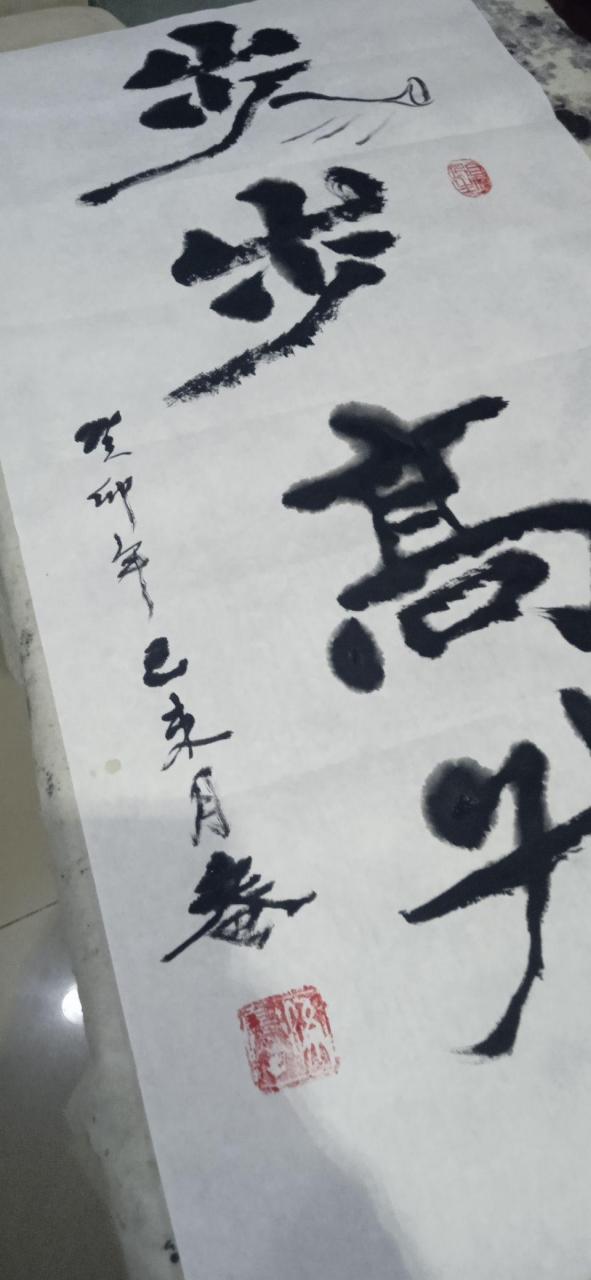 步步高升
癸卯年己未月